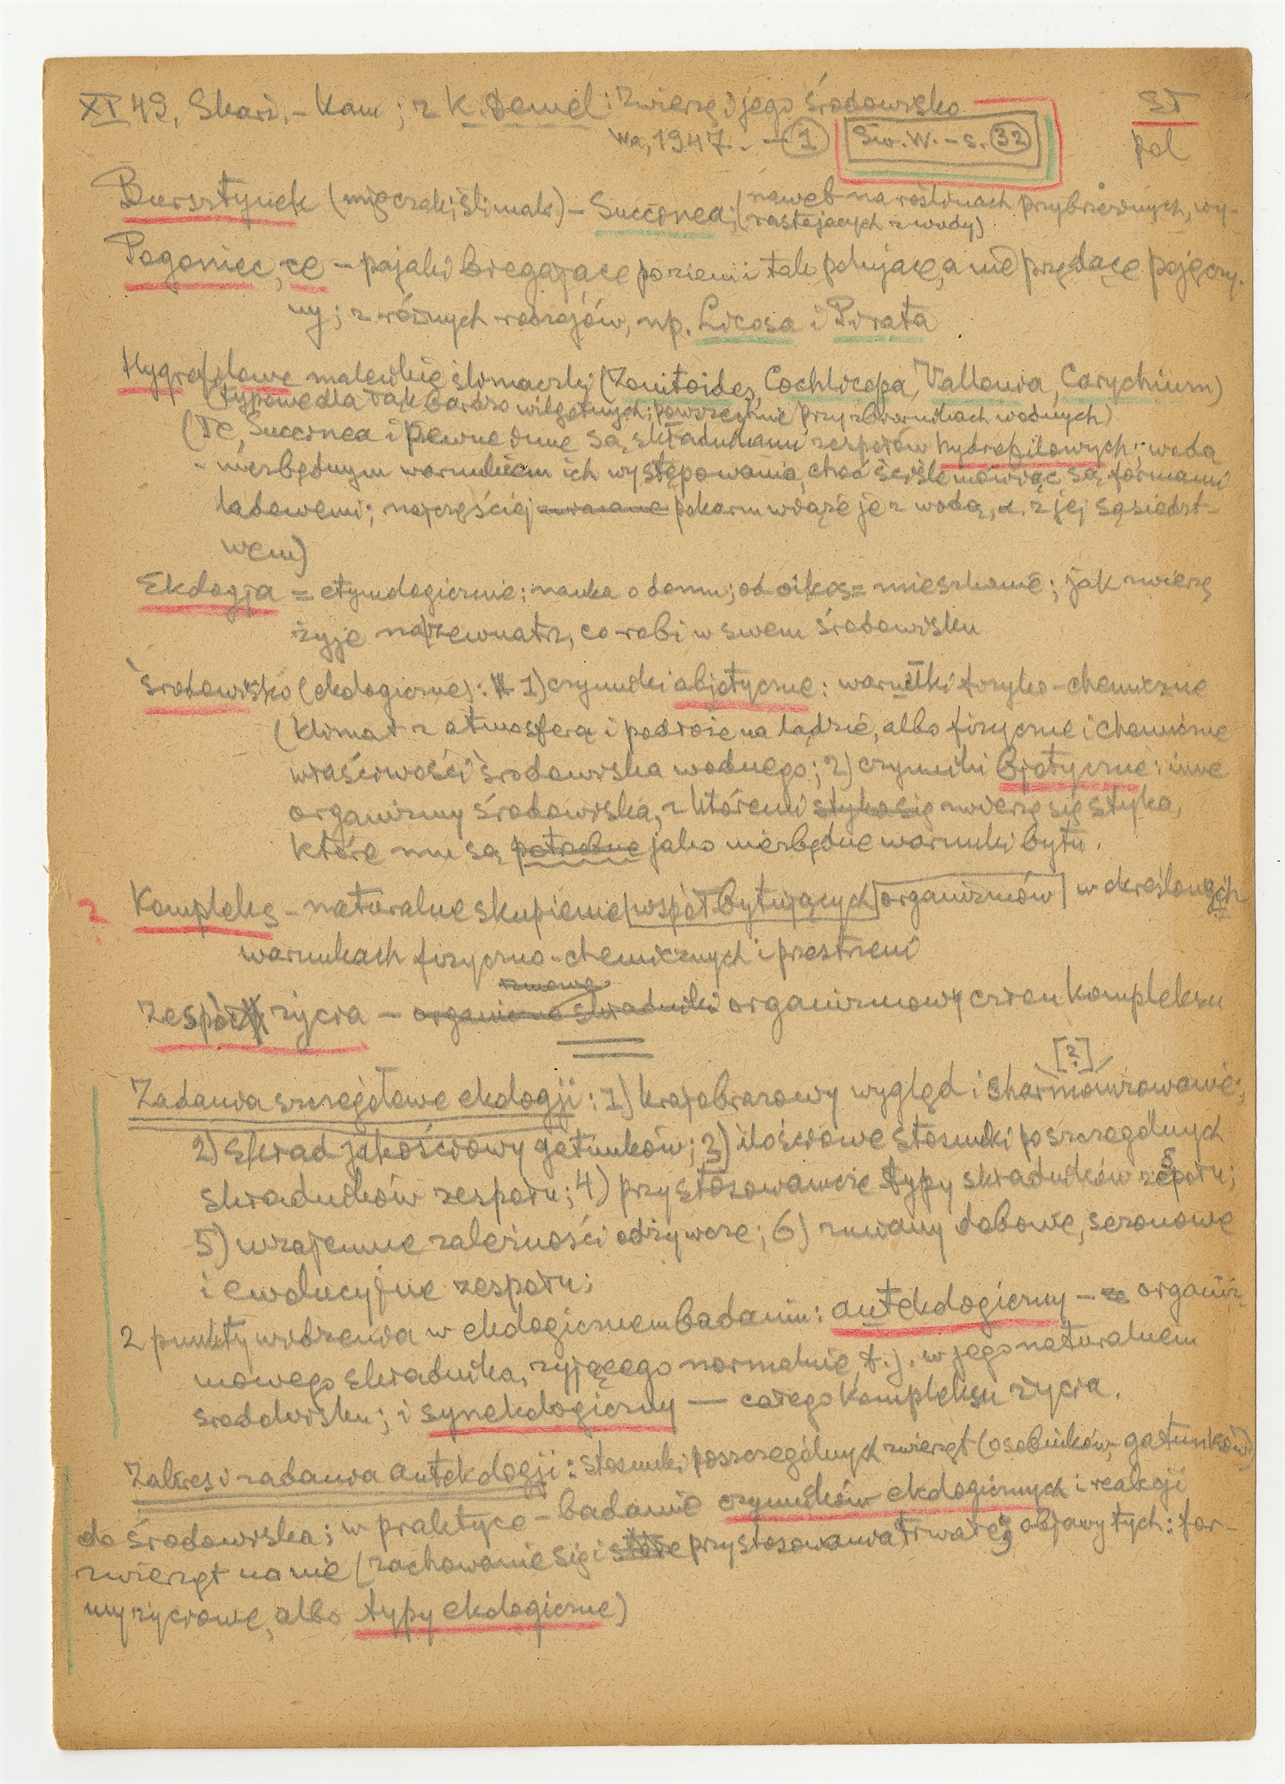 XI 49, Skarż.-Kam; z K. Demel: Zwierzę i jego środowisko
Wa, 1947. – 1 Św. W. – s. 32
ST
pol
Bursztynek (mięczak; ślimak) – Succinea; (nawet na roślinach przybrzeżnych, wy-
rastających z wody)
Pogoniec, ce – pająki biegające po ziemi i tak polujące, a nie przędące pajęczy-
ny; z różnych rodzajów, np. Licosa i Pirata
Hygrofilowe maleńkie ślimaczki (Zonitoides, Cochlicopa, Vallonia, Carychium)
(typowe dla tak bardzo wilgotnych; powszechnie przy zbiornikach wodnych)
(Te, Succinea i pewne inne są składnikami zespołów hydrofilowych; woda
- niezbędnym warunkiem ich występowania, choć ściśle mówiąc są formami
lądowemi; najczęściej pokarm wiąże je z wodą, z jej sąsiedzt-
wem)
Ekologja = etymologicznie: nauka o domu; od oikos = mieszkanie; jak zwierzę
żyje nazewnątrz, co robi w swem środowisku
Środowisko (ekologiczne): 1) czynniki abjotyczne: warunki fizyko-chemiczne
(klimat z atmosferą i podłoże na lądzie, albo fizyczne i chemiczne
właściwości środowiska wodnego; 2) czynniki bjotyczne: inne
organizmy środowiska, z któremi styka się zwierzę się styka,
które mu są potrzebne jako niezbędne warunki bytu.
? Kompleks – naturalne skupienie współbytujących organizmów w określonych
warunkach fizyczno-chemicznych i przestrzeni
Zespół życia – organiczne składniki organizmowy człon kompleksu
[?]
Zadania szczegółowe ekologji: 1) krajobrazowy wygląd i sharmonizowanie;
2) skład jakościowy gatunków; 3) ilościowe stosunki poszczególnych
składników zespołu; 4) przystosowawcze typy składników zespołu;
5) wzajemne zależności odżywcze; 6) zmiany dobowe, sezonowe
i ewolucyjne zespołu;
2 punkty widzenia w ekologicznem badaniu: autekologiczny – organiz-
mowego składnika, żyjącego normalnie, t.j. w jego naturalnem
środowisku; i synekologiczny — całego kompleksu życia.
Zakres i zadania autekologji: stosunki poszczególnych zwierząt (osobników, gatunków)
do środowiska; w praktyce – badanie czynników ekologicznych i reakcji
zwierząt na nie (zachowanie się i stałe przystosowania trwałe; objawy tych: for-
my życiowe, albo typy ekologiczne)